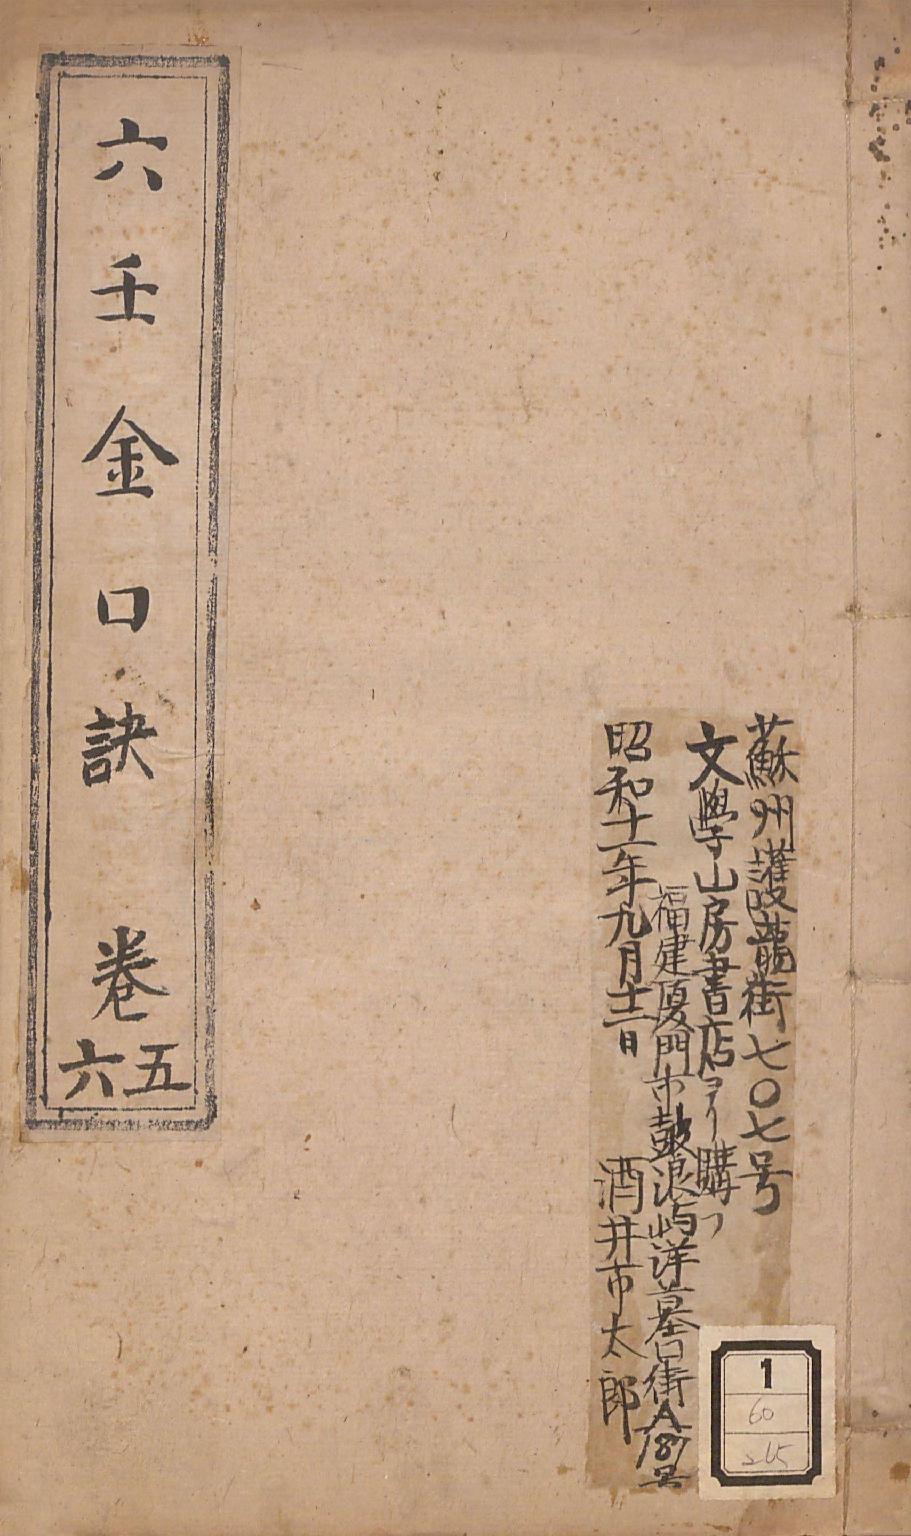 蘇州護龍街七〇七号
文學山房書店ヨリ購フ
福建厦門市鼓浪嶼洋墓口街A187号
昭和十一年九月十二日 酒井市太郎
六壬金口訣 卷
五
六
1
60
265